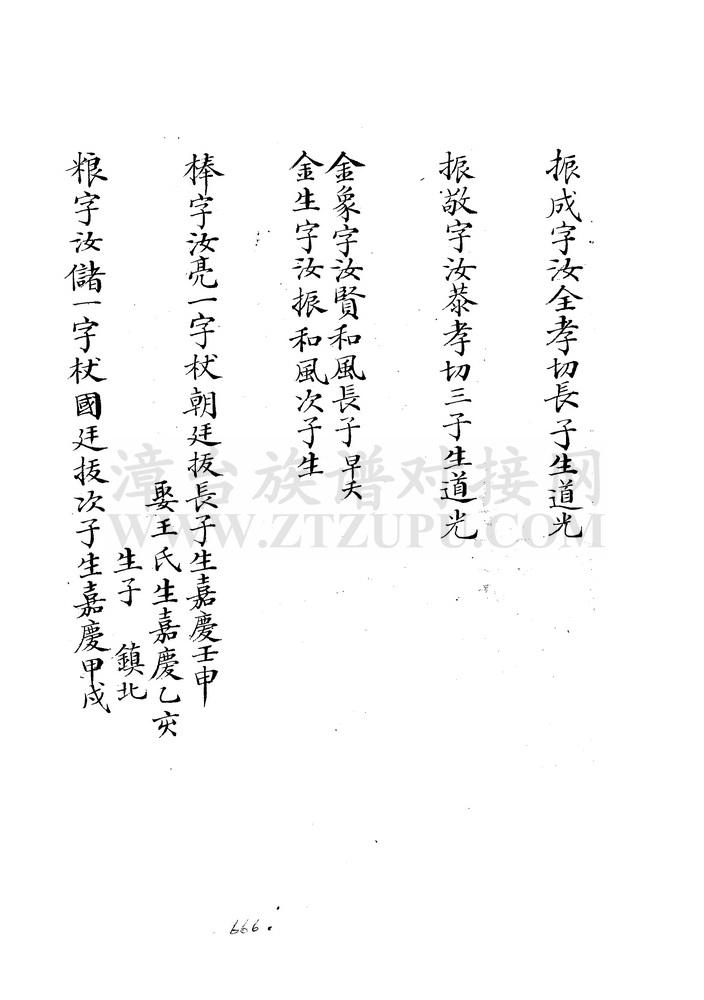 振成字汝全孝切長子生道光
振敬字汝恭孝切三子生道光
金象字汝賢和風長子早夭
金生字汝振和風次子生
棒字汝亮一字杖朝廷拔長子生嘉慶壬申
娶王氏生嘉慶乙亥
生子 鎮北
粮字汝儲一字杖國廷拔次子生嘉慶甲戌
漳台族谱对接网
WWW.ZTZUPU.COM
666